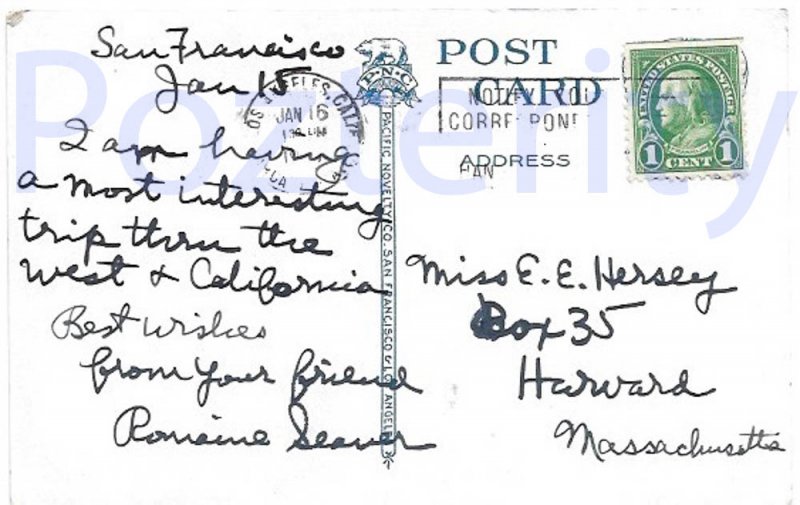 San Francisco
Jan 15
I am having
a most interesting
trip thru the
West & California
Best Wishes
from your friend
Romaine Seaver
POST
CARD
ADDRESS
P.N.C.
PACIFIC NOVELTY CO. SAN FRANCISCO & LOS ANGELES
JAN 16
CALIF.
NOTIFY
UNITED STATES POSTAGE
FRANKLIN
1 CENT 1
Miss E. E. Hersey
Box 35
Harvard
Massachusetts
Pozterity